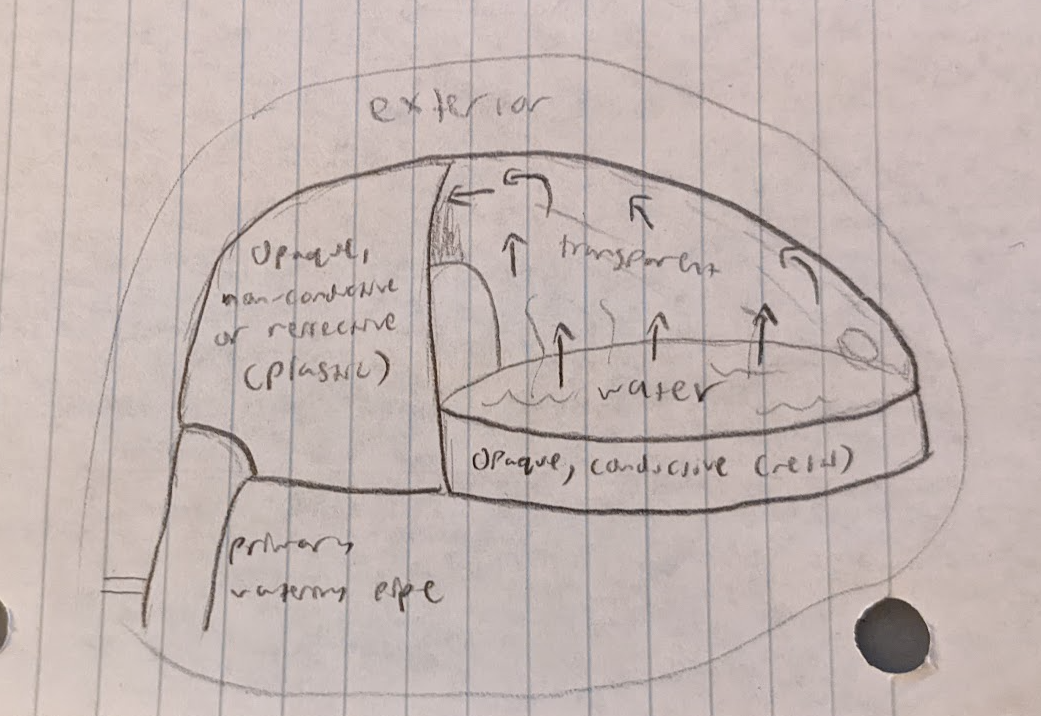 exterior
Opaque,
non-conductive
or reflective
(plastic)
transparent
water
Opaque, conductive (metal)
primary
watering pipe